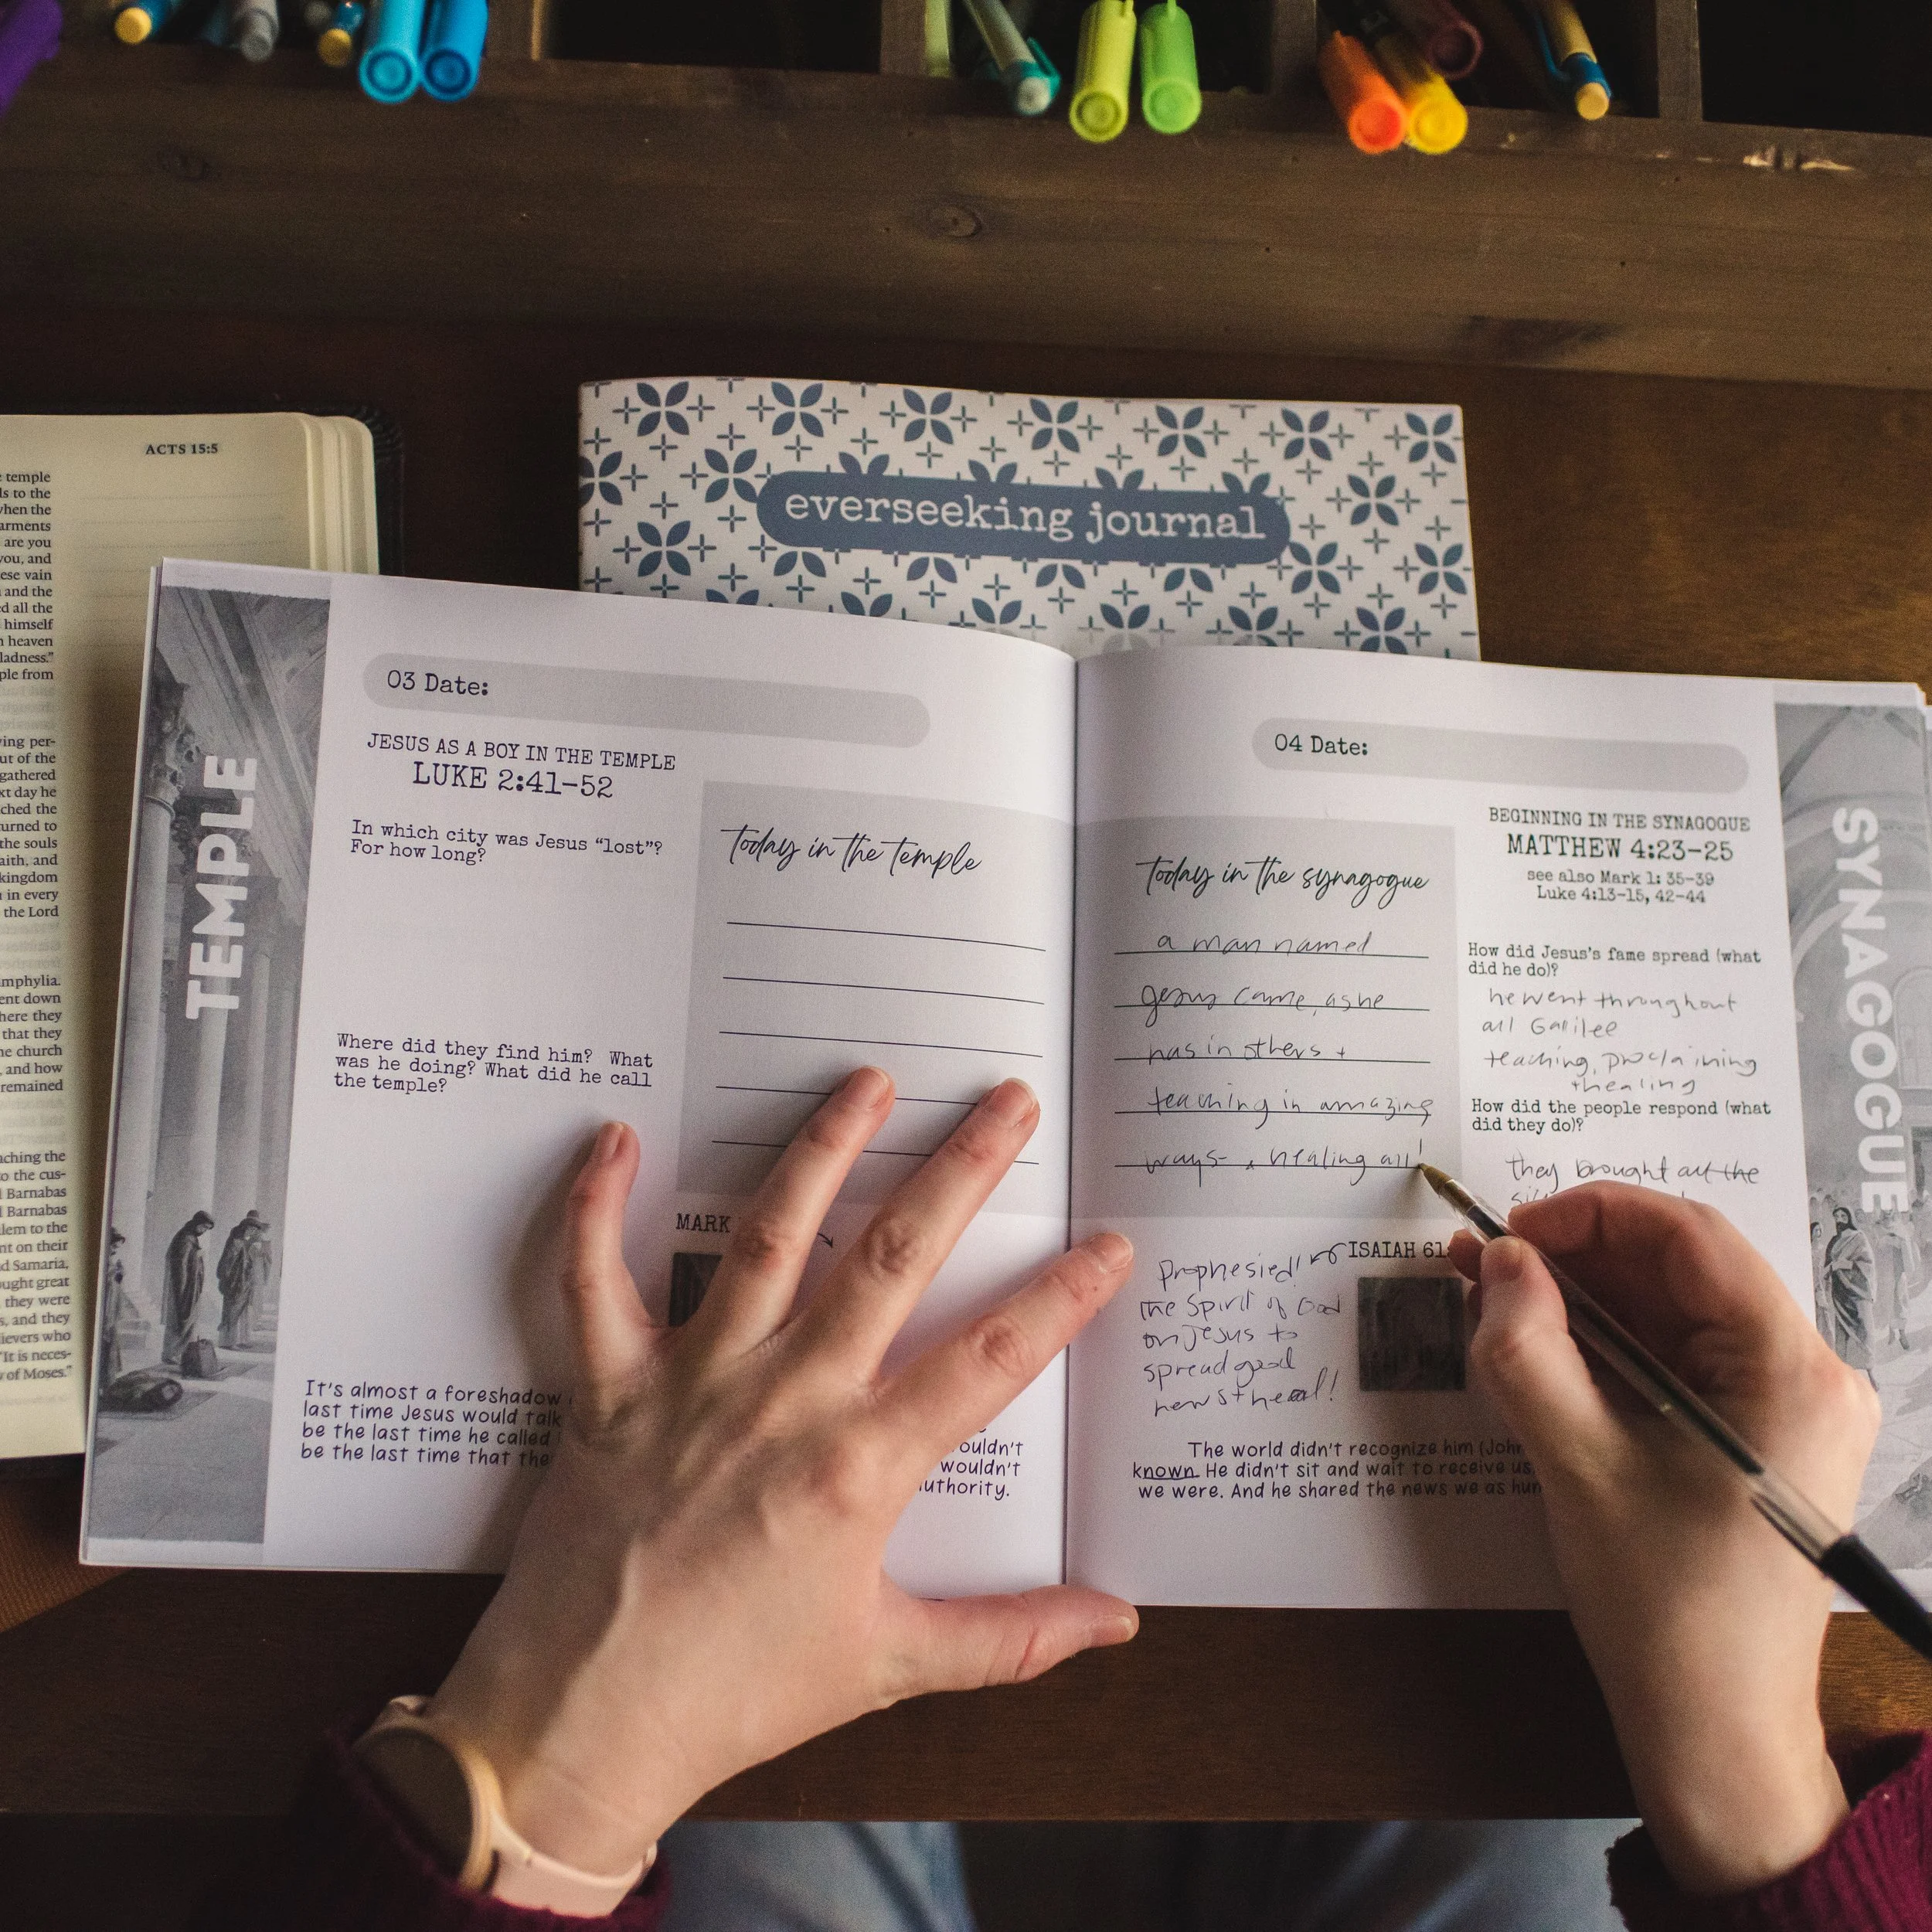 ACTS 15:5
temple
ls to the
when the
arments
are you
you, and
ese vain
and the
d all the
himself
heaven
ladness."
ple from
ving per-
ut of the
gathered
xt day he
ched the
urned to
the souls
aith, and
kingdom
in every
the Lord
mphylia.
ent down
here they
that they
he church
, and how
remained
aching the
o the cus-
Barnabas
Barnabas
lem to the
nt on their
d Samaria,
ught great
they were
s, and they
ievers who
"It is neces-
of Moses."
everseeking journal
TEMPLE
03 Date:
JESUS AS A BOY IN THE TEMPLE
LUKE 2:41-52
In which city was Jesus "lost"?
For how long?
Where did they find him? What
was he doing? What did he call
the temple?
today in the temple
MARK
It's almost a foreshadow
last time Jesus would talk
be the last time he called
be the last time that the
ouldn't
wouldn't
uthority.
04 Date:
today in the synagogue
a man named
Jesus came, as he
has in others +
teaching in amazing
ways- + healing all!
BEGINNING IN THE SYNAGOGUE
MATTHEW 4:23-25
see also Mark 1: 35-39
Luke 4:13-15, 42-44
How did Jesus's fame spread (what
did he do)?
he went throughout
all Galilee
teaching, proclaiming
+healing
How did the people respond (what
did they do)?
they brought all the
ISAIAH 61:
Prophesied!
the Spirit of God
on Jesus to
spread good
news + heal!
The world didn't recognize him (John
known. He didn't sit and wait to receive us,
we were. And he shared the news we as hum
SYNAGOGUE